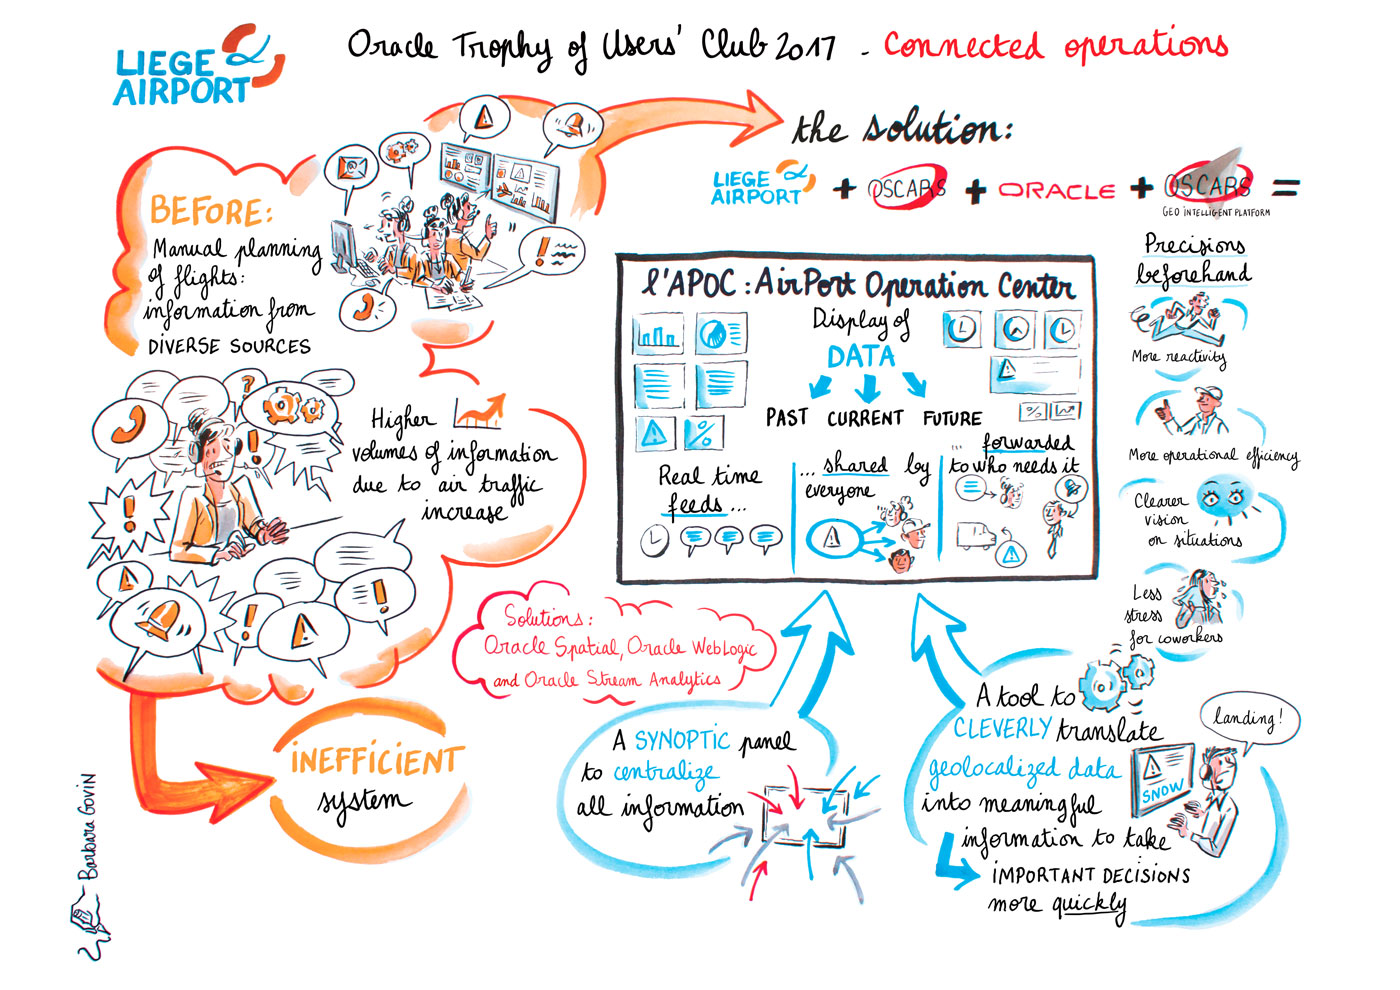 LIEGE
AIRPORT
Oracle Trophy of Users' Club 2017 - Connected operations
BEFORE:
Manual planning
of flights:
information from
DIVERSE SOURCES
Higher
volumes of information
due to air traffic
increase
INEFFICIENT
system
the solution:
LIEGE
AIRPORT
+ OSCARS + ORACLE + OSCARS =
GEO INTELLIGENT PLATFORM
l'APOC: AirPort Operation Center
Display of
DATA
PAST CURRENT FUTURE
Real time
feeds ...
... shared by
everyone
... forwarded
to who needs it
Precisions
beforehand
More reactivity
More operational efficiency
Clearer
vision
on situations
Less
stress
for coworkers
Solutions:
Oracle Spatial, Oracle WebLogic
and Oracle Stream Analytics
A SYNOPTIC panel
to centralize
all information
A tool to
CLEVERLY translate
geolocalized data
into meaningful
information to take
IMPORTANT DECISIONS
more quickly
landing!
SNOW
Barbara Govin